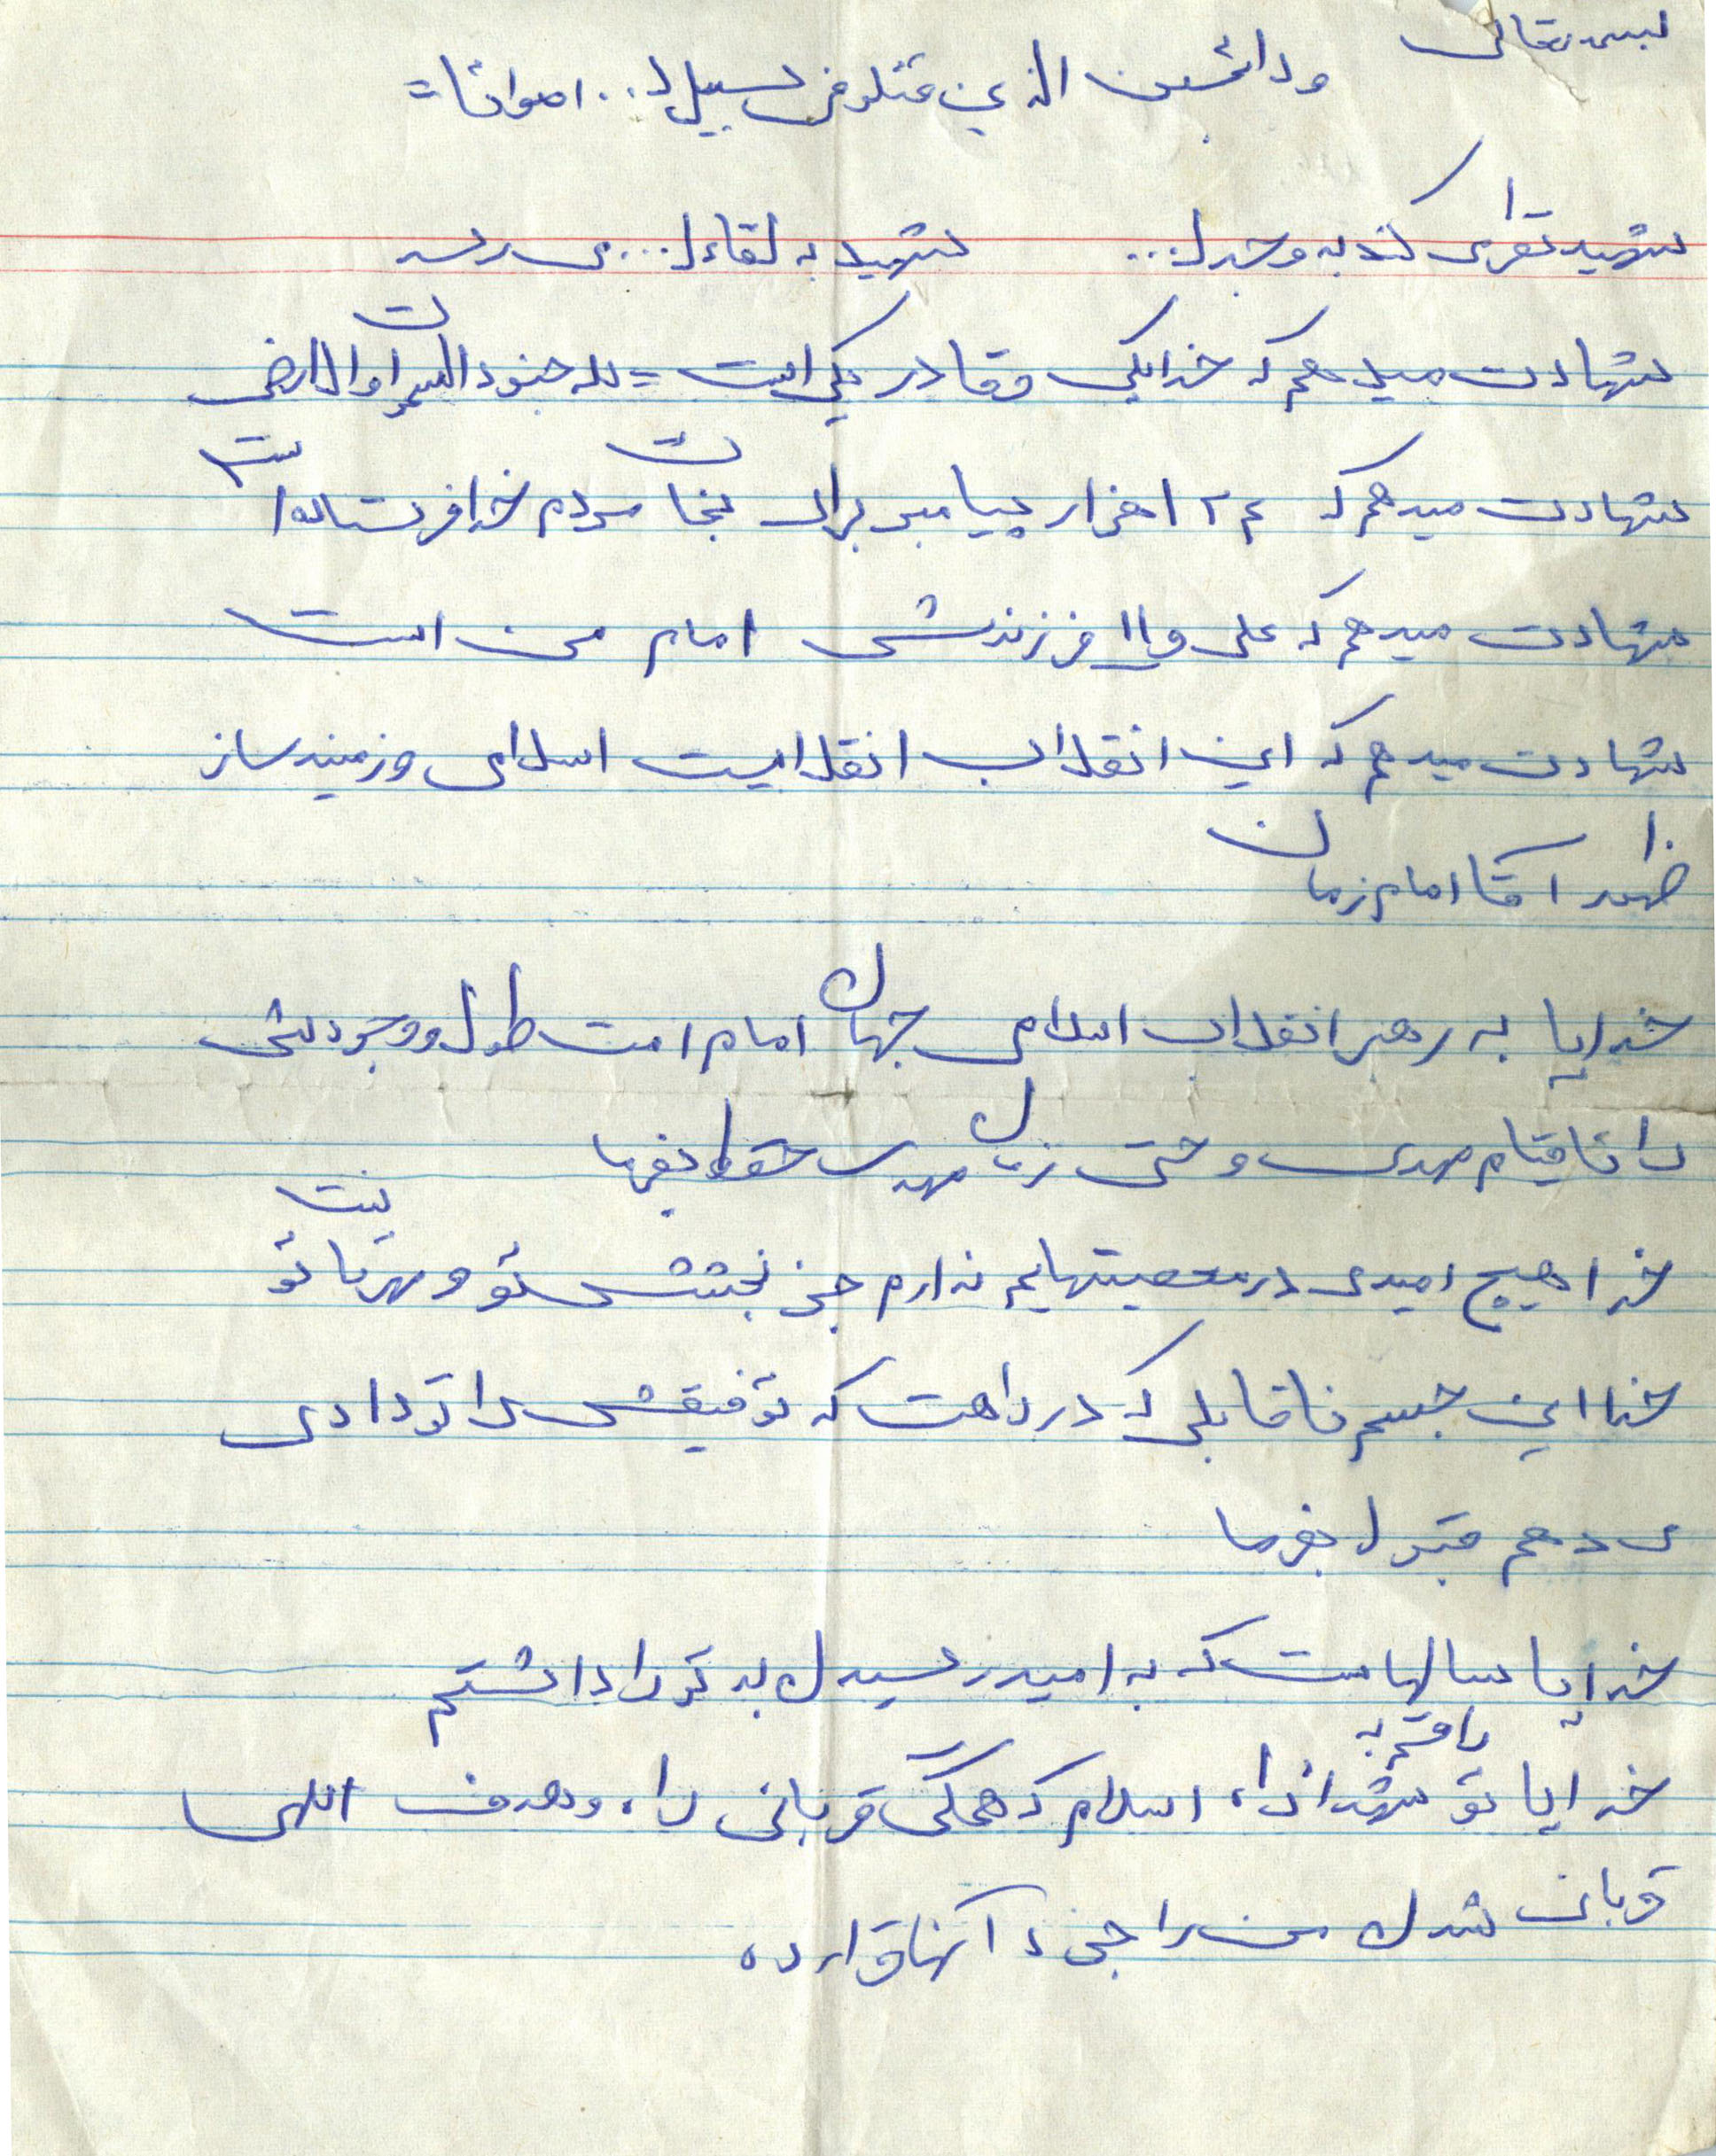 بسمه تعالی
ولا تحسبن الذین قتلو فی سبیل ا... امواتا =
شهید نظر می کند به وجه ا... شهید به لقاء ا... می رسد
شهادت میدهم که خدا یکی و قادر یکی است = لله جنود السموات والارض
شهادت میدهم که ۱۲۴ هزار پیامبر برای نجات مردم خدا فرستاده است
شهادت میدهم که علی و ۱۱ فرزندش امام من است
شهادت میدهم که این انقلاب انقلابیست اسلامی و زمینه ساز
ظهور آقا امام زمان
خدایا به رهبر انقلاب اسلامی جهان امام امت طول و وجودش
را تا قیام مهدی و حتی زمان مهدی حفظ بفرما
خدا هیچ امیدی در معصیتهایم ندارم جز بخشش تو و مهربانیت تو
خدا این جسم ناقابلی که در راهت که توفیقش را تو دادی
می دهم قبول بفرما
خدایا سالهاست که به امید رسیدن به تو را داشتم
خدایا تو را قسم به شهدا راه اسلام که همگی قربانی راه و هدف اللهی
قربان شدن من را جزء آنها قرار ده